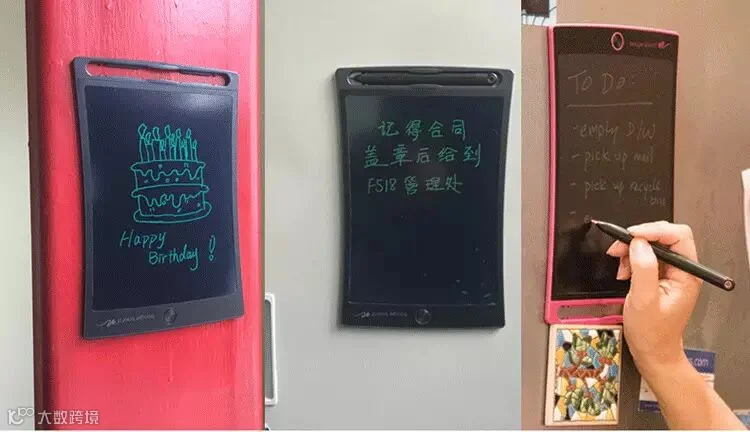 Happy
Birthday!
记得合同
盖章后给到
F518管理处
To Do:
- empty D/W
- pick up mail
- pick up recycle
bins
大数跨境